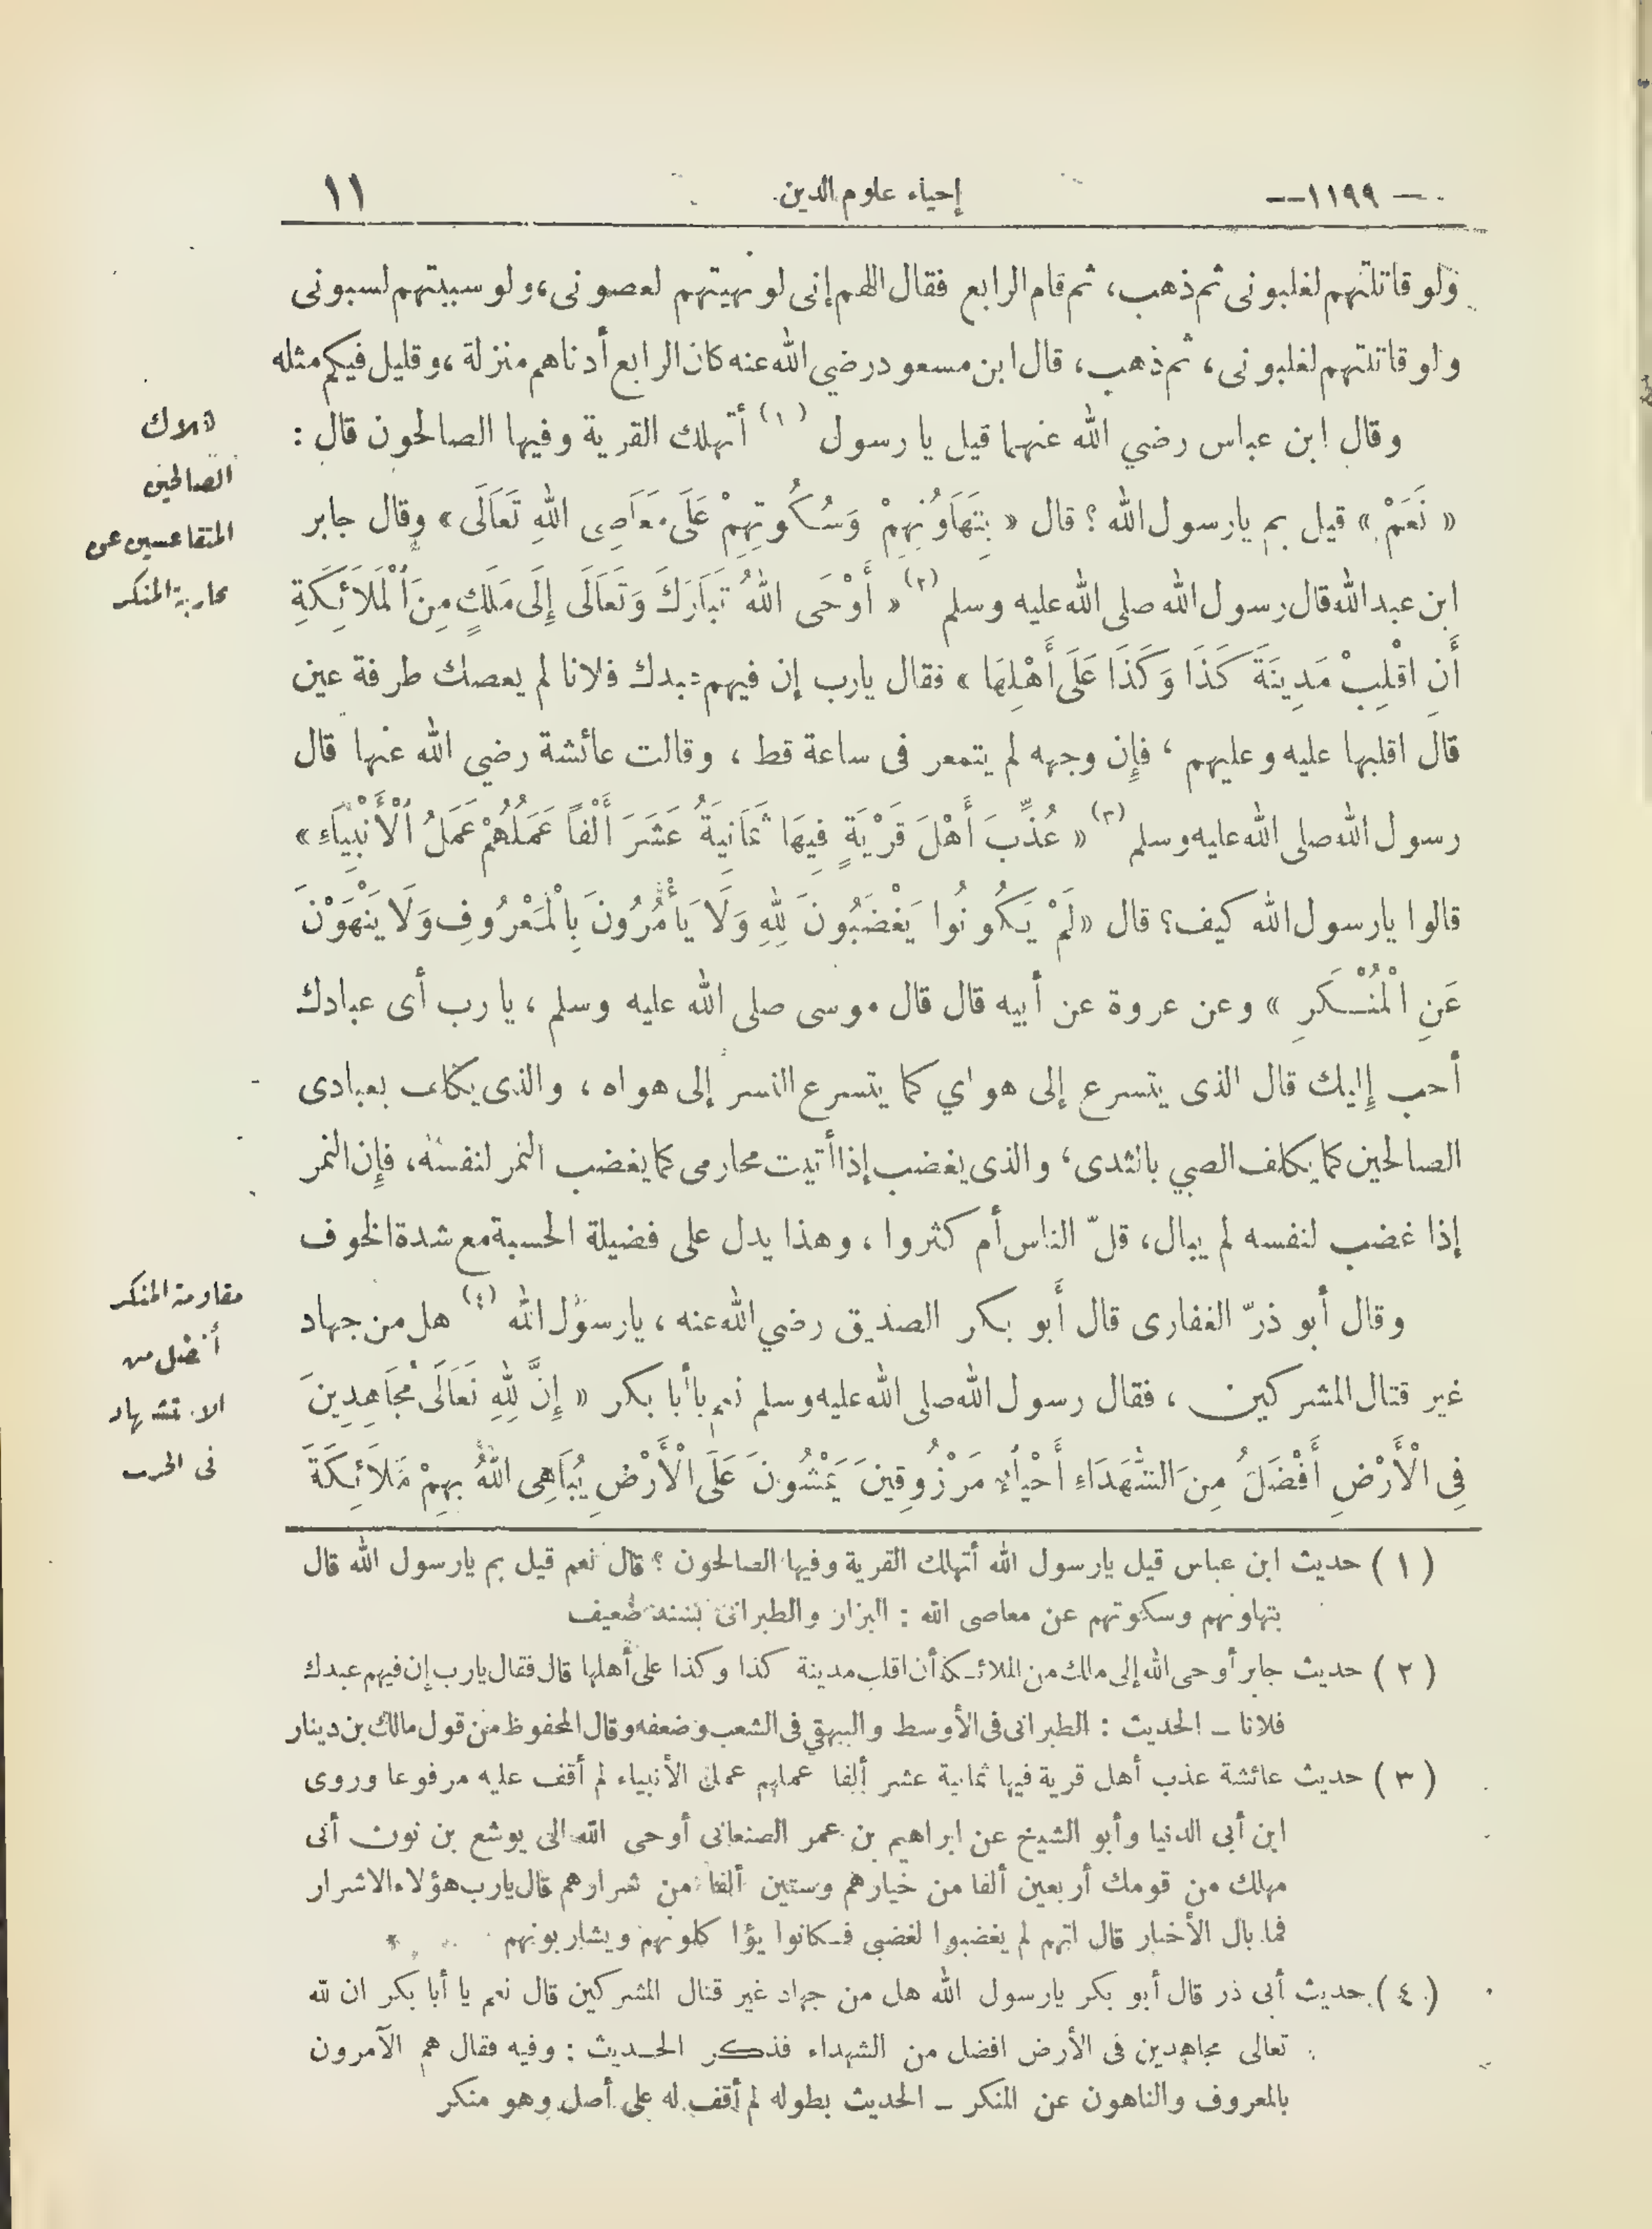 — ١١٩٩ —
إحياء علوم الدين
١١
ولو قاتلتهم لغلبونى ثم ذهب، ثم قام الرابع فقال اللهم إنى لو نهيتهم لعصونى، ولو سببتهم لسبونى
ولو قاتلتهم لغلبونى، ثم ذهب، قال ابن مسعود رضي الله عنه كان الرابع أدناهم منزلة، وقليل فيكم مثله
وقال ابن عباس رضي الله عنهما قيل يا رسول (١) أتهلك القرية وفيها الصالحون قال :
« نَعَمْ » قيل بم يارسول الله ؟ قال « بِتَهَاوُنِهِمْ وَسُكُوتِهِمْ عَلَى مَعَاصِى اللهِ تَعَالَى » وقال جابر
ابن عبد الله قال رسول الله صلى الله عليه وسلم (٢) « أَوْحَى اللهُ تَبَارَكَ وَتَعَالَى إِلَى مَلَكٍ مِنَ الْمَلَائِكَةِ
أَنِ اقْلِبْ مَدِينَةَ كَذَا وَكَذَا عَلَى أَهْلِهَا » فقال يارب إن فيهم عبدك فلانا لم يعصك طرفة عين
قال اقلبها عليه وعليهم ، فإن وجهه لم يتمعر فى ساعة قط ، وقالت عائشة رضي الله عنها قال
رسول الله صلى الله عليه وسلم (٣) « عُذِّبَ أَهْلَ قَرْيَةٍ فِيهَا ثَمَانِيَةُ عَشَرَ أَلْفاً عَمَلُهُمْ عَمَلُ الْأَنْبِيَاءِ »
قالوا يارسول الله كيف؟ قال «لَمْ يَكُونُوا يَغْضَبُونَ لِلهِ وَلَا يَأْمُرُونَ بِالْمَعْرُوفِ وَلَا يَنْهَوْنَ
عَنِ الْمُنْكَرِ » وعن عروة عن أبيه قال قال موسى صلى الله عليه وسلم ، يا رب أى عبادك
أحب إليك قال الذى يتسرع إلى هواي كما يتسرع النسر إلى هواه ، والذى يكلف بعبادى
الصالحين كما يكلف الصبي بالثدى، والذى يغضب إذا أتيت محارمى كما يغضب النمر لنفسه، فإن النمر
إذا غضب لنفسه لم يبال، قلّ الناس أم كثروا ، وهذا يدل على فضيلة الحسبة مع شدة الخوف
وقال أبو ذرّ الغفارى قال أبو بكر الصديق رضي الله عنه ، يارسول الله (٤) هل من جهاد
غير قتال المشركين ، فقال رسول الله صلى الله عليه وسلم نعم ياأبا بكر « إِنَّ لِلهِ تَعَالَى مُجَاهِدِينَ
فِى الْأَرْضِ أَفْضَلَ مِنَ الشُّهَدَاءِ أَحْيَاءً مَرْزُوقِينَ يَمْشُونَ عَلَى الْأَرْضِ يُبَاهِى اللهُ بِهِمْ مَلَائِكَةَ
هلاك
الصالحين
المتقاعسين عن
محاربة المنكر
مقاومة المنكر
أفضل من
الاستشهاد
فى الحرب
( ١ ) حديث ابن عباس قيل يارسول الله أتهلك القرية وفيها الصالحون ؟ قال نعم قيل بم يارسول الله قال
بتهاونهم وسكوتهم عن معاصى الله : البزار والطبرانى بسند ضعيف
( ٢ ) حديث جابر أوحى الله إلى ملك من الملائكة أن اقلب مدينة كذا وكذا على أهلها قال فقال يارب إن فيهم عبدك
فلانا ــ الحديث : الطبرانى فى الأوسط والبيهقي فى الشعب وضعفه وقال المحفوظ من قول مالك بن دينار
( ٣ ) حديث عائشة عذب أهل قرية فيها ثمانية عشر ألفا عملهم عمل الأنبياء لم أقف عليه مرفوعا وروى
ابن أبى الدنيا وأبو الشيخ عن ابراهيم بن عمر الصنعانى أوحى الله الى يوشع بن نون أنى
مهلك من قومك أربعين ألفا من خيارهم وستين ألفا من شرارهم قال يارب هؤلاء الاشرار
فما بال الأخيار قال انهم لم يغضبوا لغضبى فكانوا يؤا كلونهم ويشاربونهم
( ٤ ) حديث أبى ذر قال أبو بكر يارسول الله هل من جهاد غير قتال المشركين قال نعم يا أبا بكر ان لله
تعالى مجاهدين فى الأرض افضل من الشهداء فذكر الحديث : وفيه فقال هم الآمرون
بالمعروف والناهون عن المنكر ــ الحديث بطوله لم أقف له على أصل وهو منكر